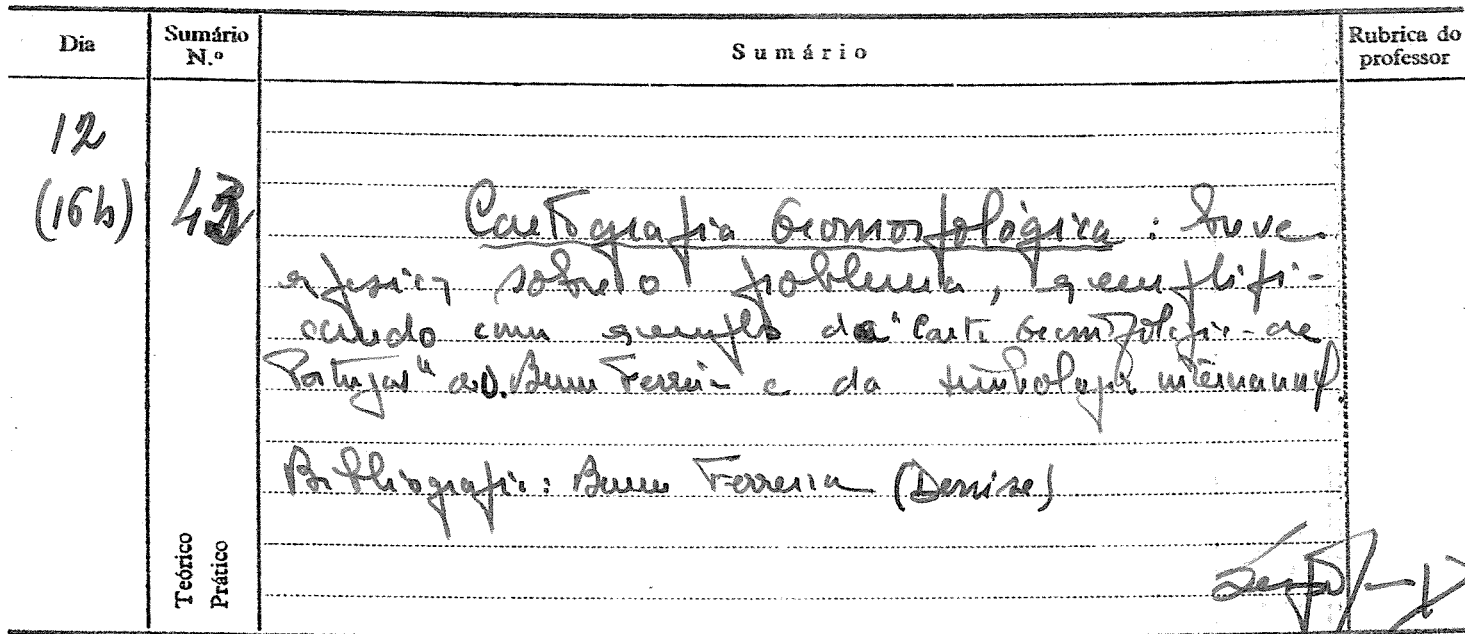 Dia
Sumário N.º
Sumário
Rubrica do professor
12
(16h)
43
Cartografia Geomorfológica : breve
exposição sobre o problema, exemplifi-
cando com exemplo da "Carta Geomorfológica de
Portugal" de D. Brum Ferreira e da simbologia internacional.
Bibliografia: Brum Ferreira (Denise)
Teórico
Prático